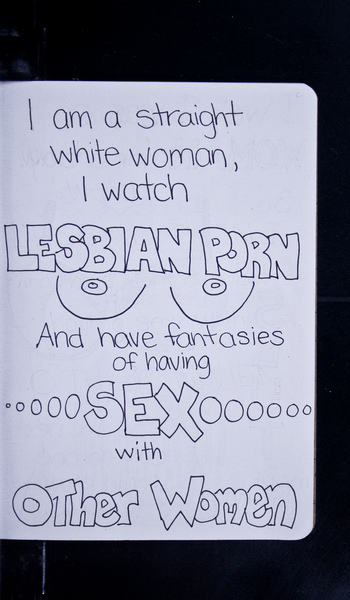 I am a straight
white woman,
I watch
LESBIAN PORN
And have fantasies
of having
SEX
with
OTHer WOMEN